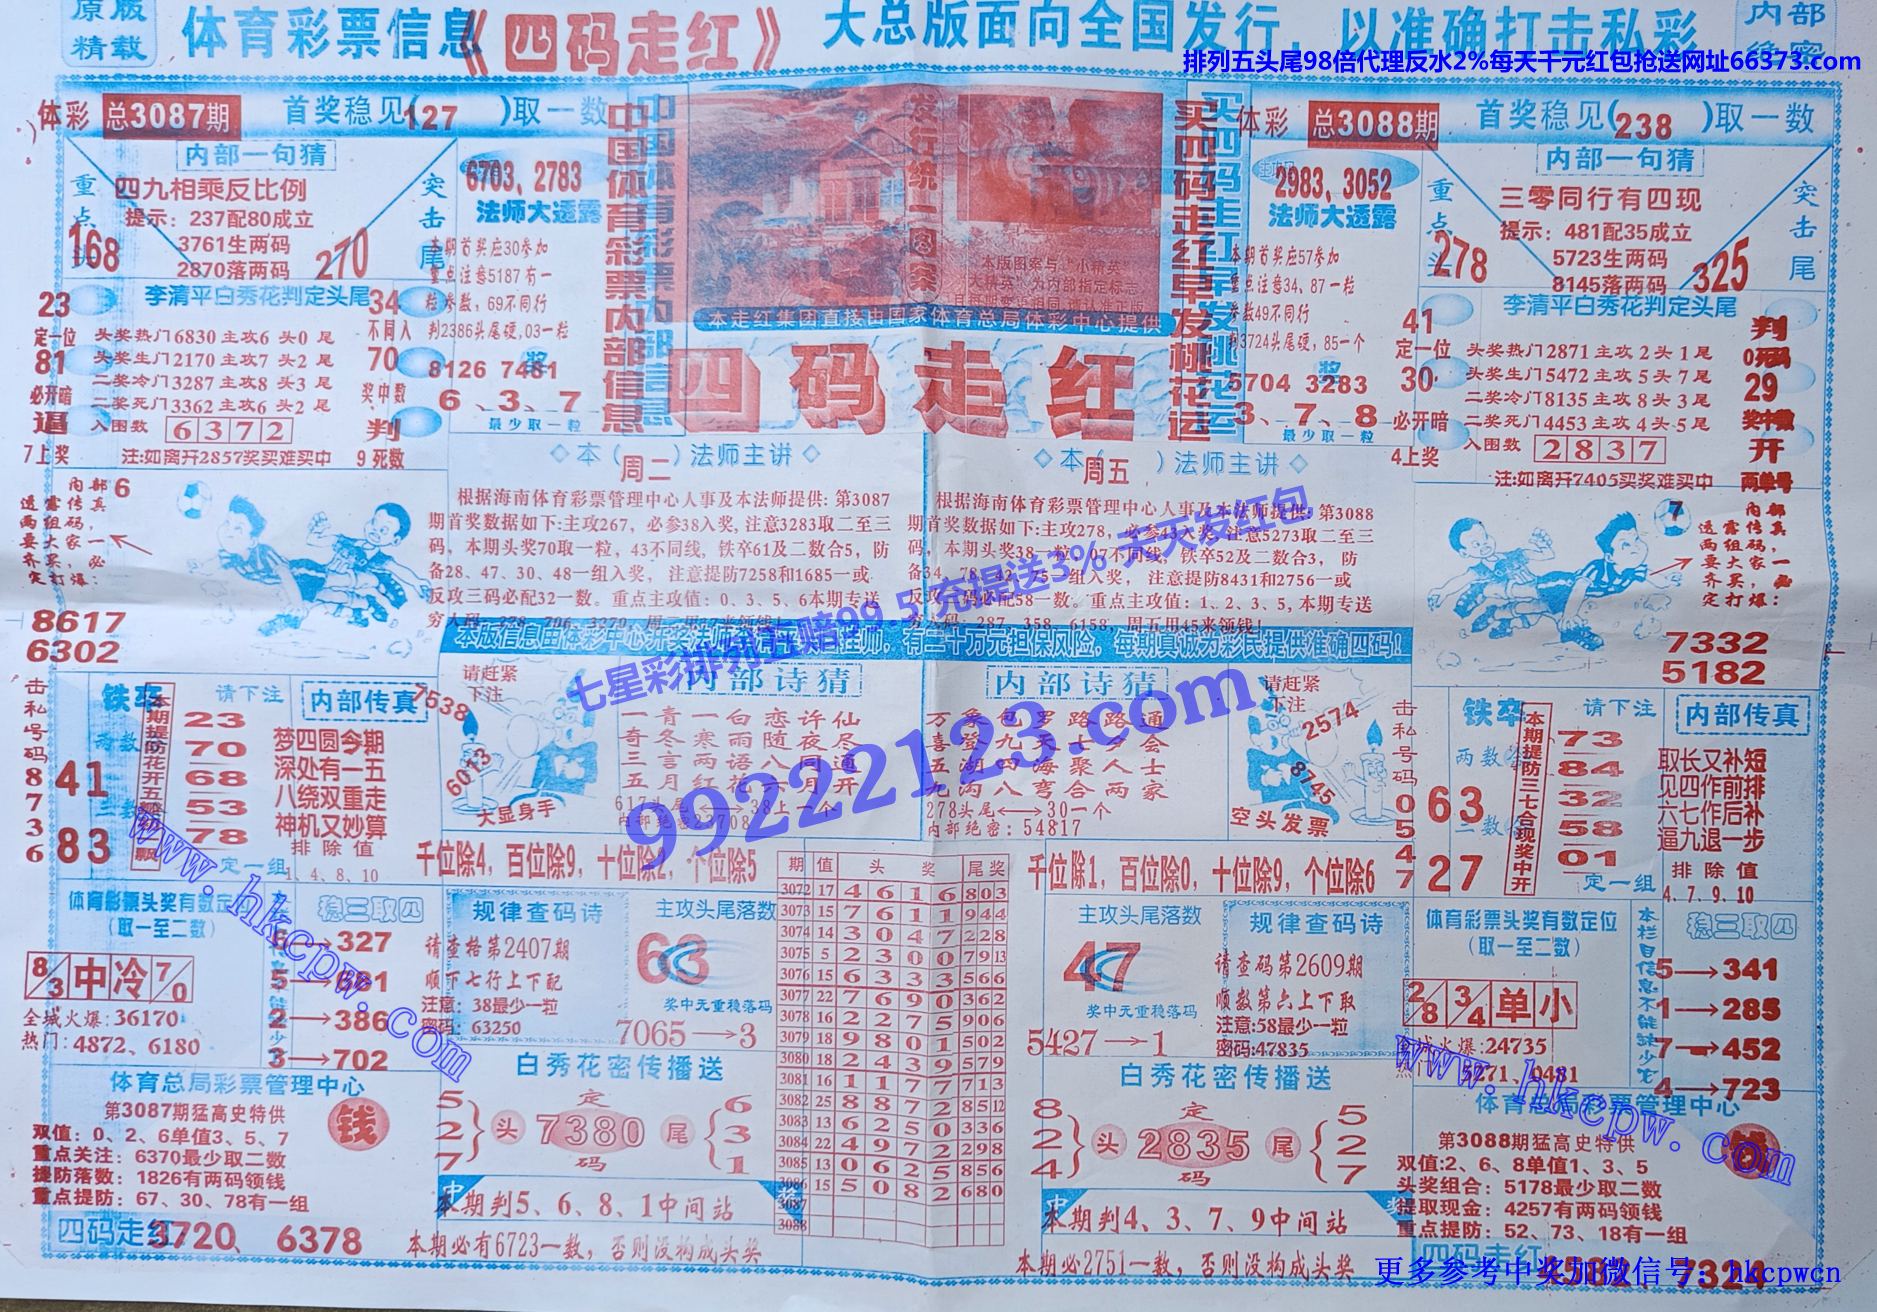 原版
精载
体育彩票信息
《四码走红》
大总版面向全国发行，以准确打击私彩
内部
排列五头尾98倍代理反水2%每天千元红包抢送网址66373.com
体彩 总3087期
首奖稳见(127)取一数
内部一句猜
四九相乘反比例
提示：237配80成立
3761生两码
2870落两码
重点头
168
突击尾
270
李清平白秀花判定头尾
23
定一位
81
必开暗
逼
7上奖
头奖热门6830主攻6头0尾
头奖生门2170主攻7头2尾
二奖冷门3287主攻8头3尾
二奖死门3362主攻6头2尾
入围数 6372
注:如离开2857奖买难买中
34
不同入
70
奖中数
判
9死数
6703、2783
法师大透露
本期首奖应30参加
重点注意5187有一
粒参数，69不同行
判2386头尾硬,03一粒
8126 7481
6、3、7
最少取一粒
中国体育彩票内部信息
发行统一图案
本版图案与“小精英
大精英”为内部指定标志
本走红集团直接由国家体育总局体彩中心提供
四码走红
买四码走红早发桃花运
2983、3052
法师大透露
本期首奖应57参加
重点注意34、87一粒
参数49不同行
判3724头尾硬，85一个
5704 3283
3、7、8
最少取一粒
体彩 总3088期
首奖稳见(238)取一数
内部一句猜
三零同行有四现
提示：481配35成立
5723生两码
8145落两码
重点头
278
突击尾
325
李清平白秀花判定头尾
41
定一位
30
必开暗
4上奖
头奖热门2871主攻2头1尾
头奖生门5472主攻5头7尾
二奖冷门8135主攻8头3尾
二奖死门4453主攻4头5尾
入围数 2837
注:如离开7405买奖难买中
判
0死码
29
奖中数
开
两单号
◇本(周二)法师主讲◇
根据海南体育彩票管理中心人事及本法师提供: 第3087
期首奖数据如下:主攻267，必参38入奖, 注意3283取二至三
码，本期头奖70取一粒，43不同线, 铁卒61及二数合5，防
备28、47、30、48一组入奖， 注意提防7258和1685一或
反攻三码必配32一数。重点主攻值: 0、3、5、6本期专送
◇本(周五)法师主讲◇
根据海南体育彩票管理中心人事及本法师提供: 第3088
期首奖数据如下:主攻278，必参43入奖, 注意5273取二至三
码, 本期头奖38一粒，07不同线，铁卒52及二数合3，防
备34、78、42、75一组入奖， 注意提防8431和2756一或
反攻三码必配58一数。重点主攻值: 1、2、3、5, 本期专送
穷人码：287、358、6158，周五用45来领钱！
6
内部
透露传真
两组码，
要大家一
齐买，必
定打爆:
8617
6302
7
内部
透露传真
两组码，
要大家一
齐买，必
定打爆:
7332
5182
七星彩排列五赔99.5 充提送3% 天天发红包
99222123.com
击私号码
8736
铁卒
两数合
41
三数合
83
本期提防花开五瓣红飘
请下注
23
70
68
53
78
定一组
内部传真
梦四圆今期
深处有一五
八绕双重走
神机又妙算
排除值
1、4、8、10
7538
请赶紧
下注
6013
大显身手
内部诗猜
一青一白恋许仙
奇冬寒雨随夜尽
三言两语八同通
五月红花六月开
617头尾⟵⟶38上一个
内部绝密23708
内部诗猜
万象包罗路路通
喜登九天七夕会
五湖四海聚人士
九沟八弯合两家
278头尾⟵⟶30一个
内部绝密: 54817
请赶紧
下注
2574
8745
空头发票
击私号码
0547
铁卒
两数合
63
三数合
27
本期提防三七合现奖中开
请下注
73
84
32
58
01
定一组
内部传真
取长又补短
见四作前排
六七作后补
逼九退一步
排除值
4、7、9、10
千位除4，百位除9，十位除2，个位除5
千位除1，百位除0，十位除9，个位除6
期 值 头奖 尾奖
3072 17 4 6 1 6 803
3073 15 7 6 1 1 944
3074 14 3 0 4 7 228
3075 5 2 3 0 0 7913
3076 15 6 3 3 3 566
3077 22 7 6 9 0 362
3078 16 2 2 7 5 906
3079 18 9 8 0 1 502
3080 18 2 4 3 9 579
3081 16 1 1 7 7 713
3082 25 8 8 7 2 8512
3083 13 6 2 5 0 336
3084 22 4 9 7 2 298
3085 13 0 6 2 5 856
3086 15 5 0 8 2 680
3087
3088
体育彩票头奖有数定位
(取一至二数)
8/3 中 冷 7/0
全城火爆:36170
热门: 4872、6180
稳三取四
6→327
5→681
2→386
3→702
规律查码诗
请查格第2407期
顺下七行上下配
注意: 38最少一粒
密码: 63250
主攻头尾落数
63
奖中无重稳落码
7065→3
白秀花密传播送
5
2
7
头
定
7380
码
尾
6
3
1
本期判5、6、8、1中间站
本期必有6723一数，否则没构成头奖
体育总局彩票管理中心
第3087期猛高史特供
双值: 0、2、6单值3、5、7
重点关注：6370最少取二数
提防落数：1826有两码领钱
重点提防：67、30、78有一组
钱
四码走红
3720、6378
主攻头尾落数
47
奖中无重稳落码
5427→1
规律查码诗
请查码第2609期
顺数第六上下取
注意:58最少一粒
密码:47835
白秀花密传播送
8
2
4
头
定
2835
码
尾
5
2
7
本期判4、3、7、9中间站
本期必2751一数，否则没构成头奖
体育彩票头奖有数定位
(取一至二数)
2/8 3/4 单 小
全城火爆:24735
5271、0481
本栏目信息不能缺少它
稳三取四
5→341
1→285
7→452
4→723
体育总局彩票管理中心
第3088期猛高史特供
双值:2、6、8单值1、3、5
头奖组合：5178最少取二数
提取现金：4257有两码领钱
重点提防：52、73、18有一组
四码走红
7324
www.hkcpw.com
www.hkcpw.com
更多参考中奖加微信号：hkcpwcn